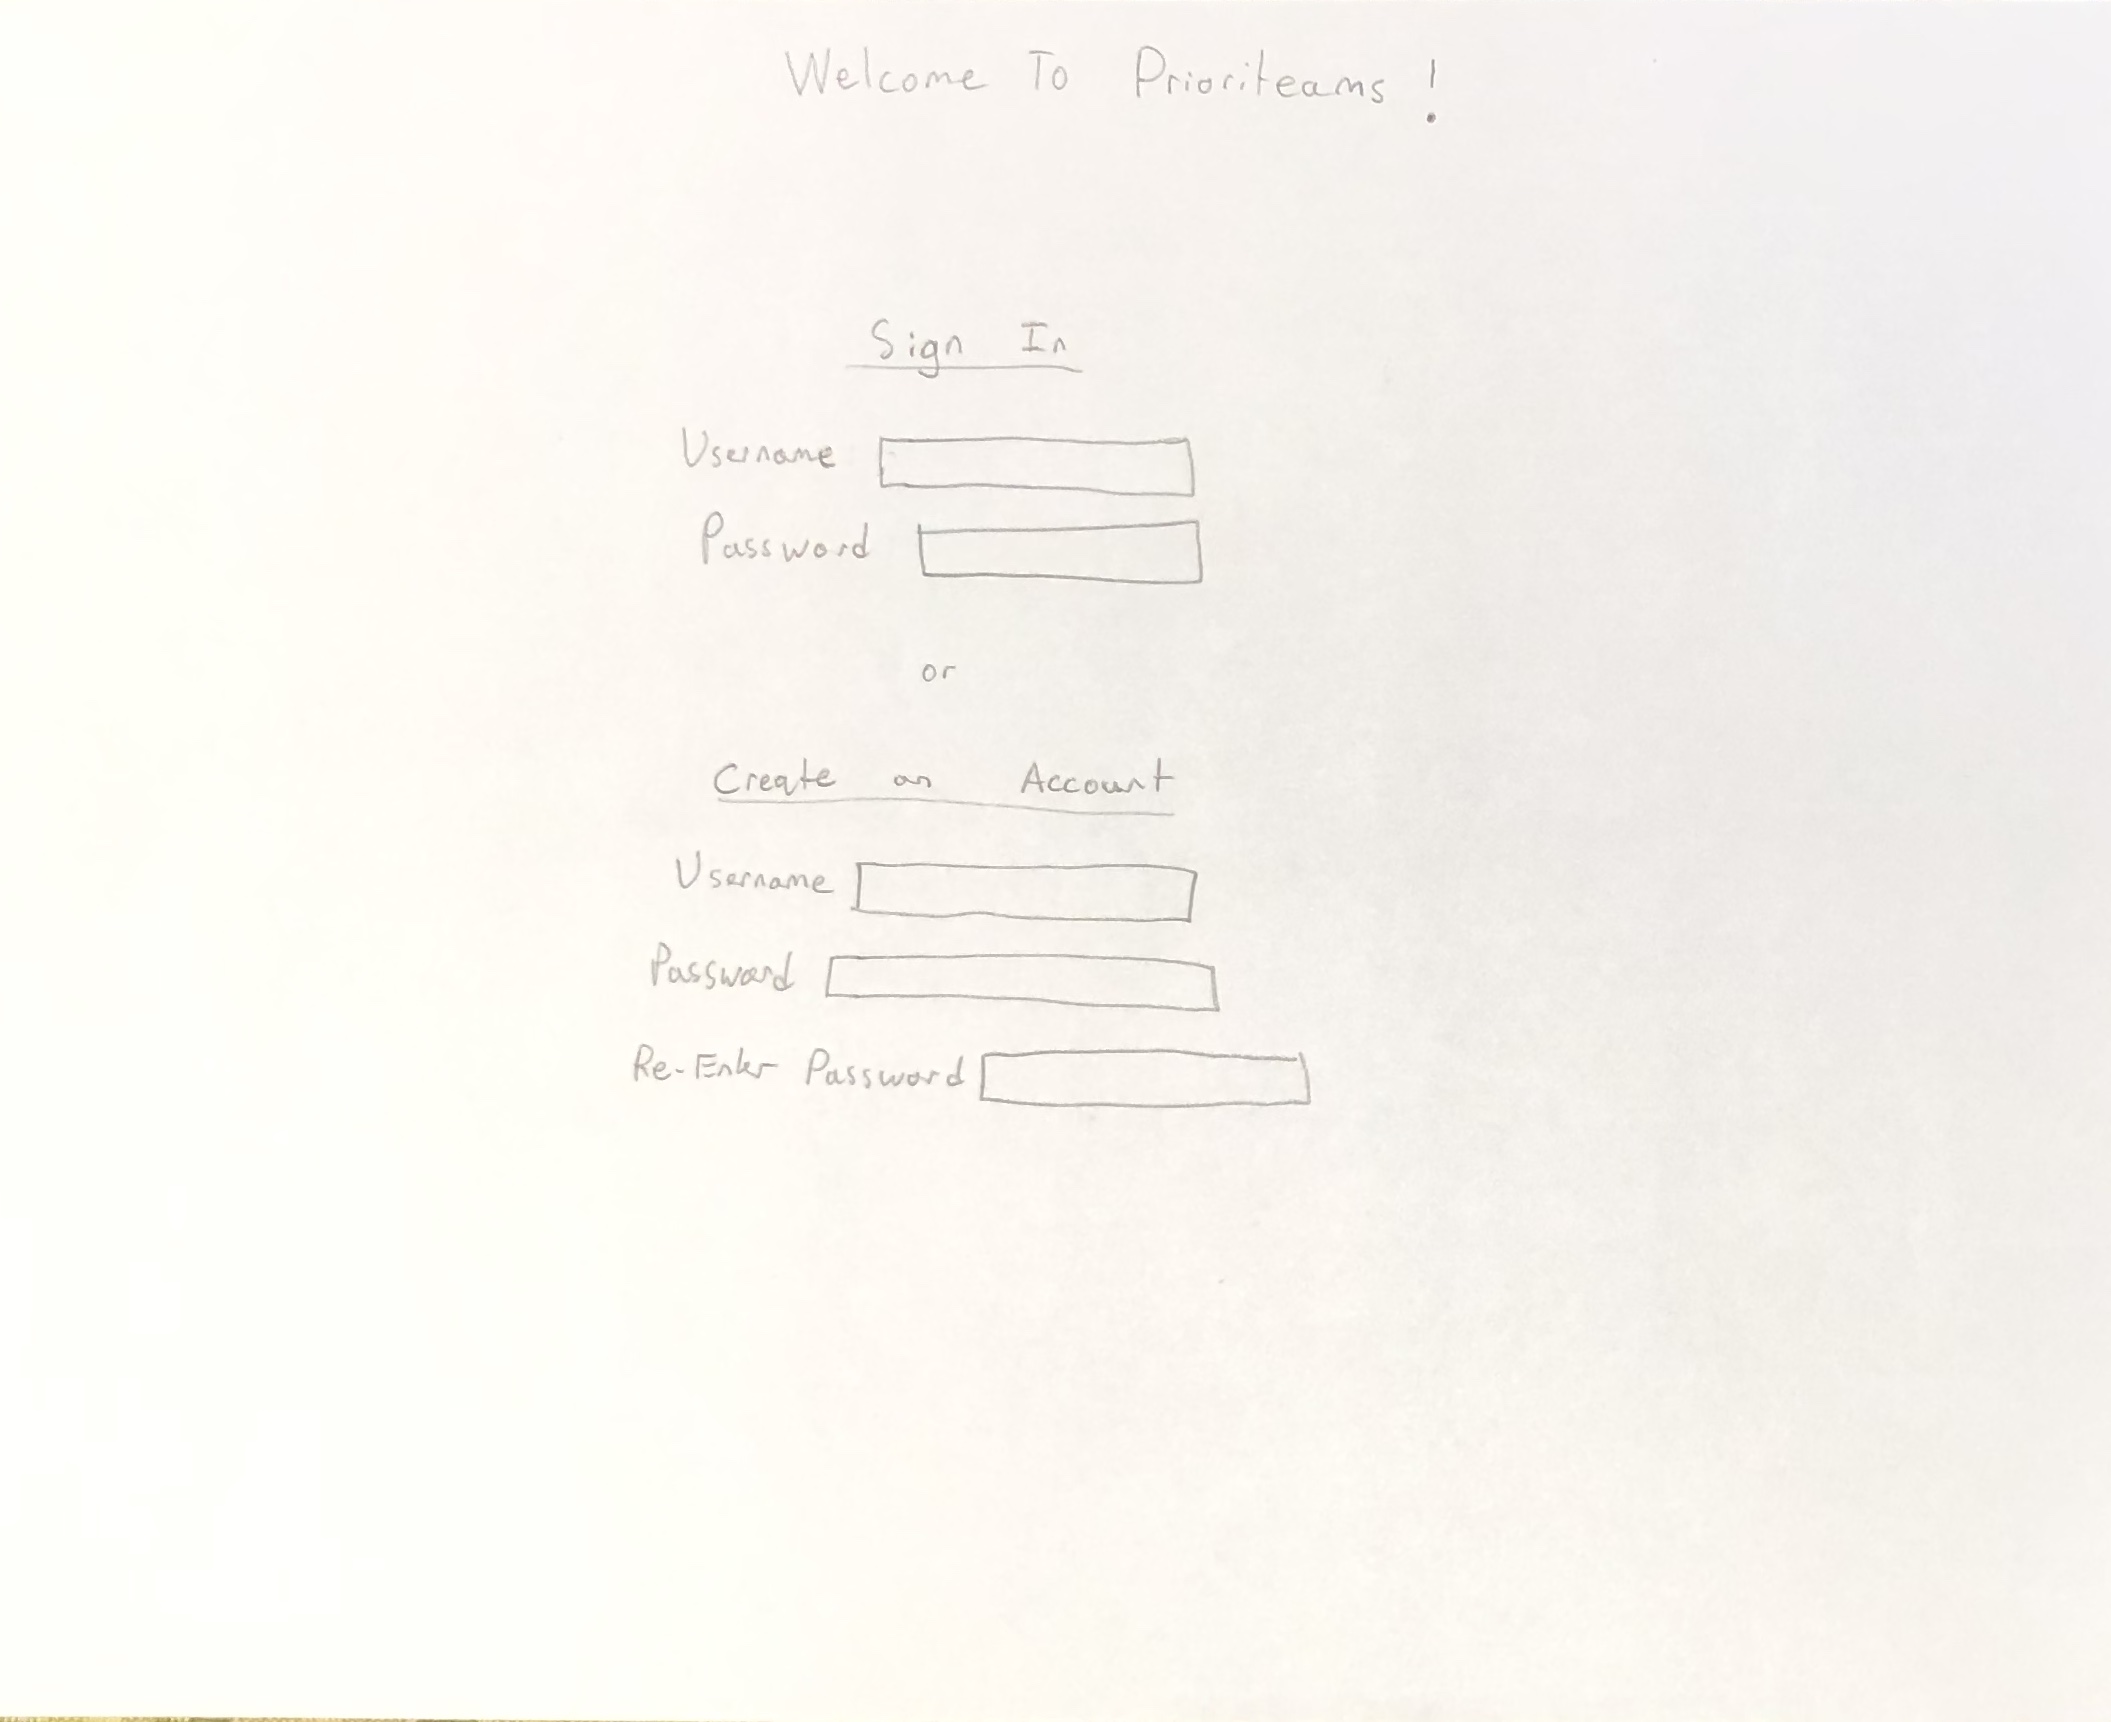 Welcome To Prioriteams!
Sign In
Username
Password
or
Create an Account
Username
Password
Re-Enter Password